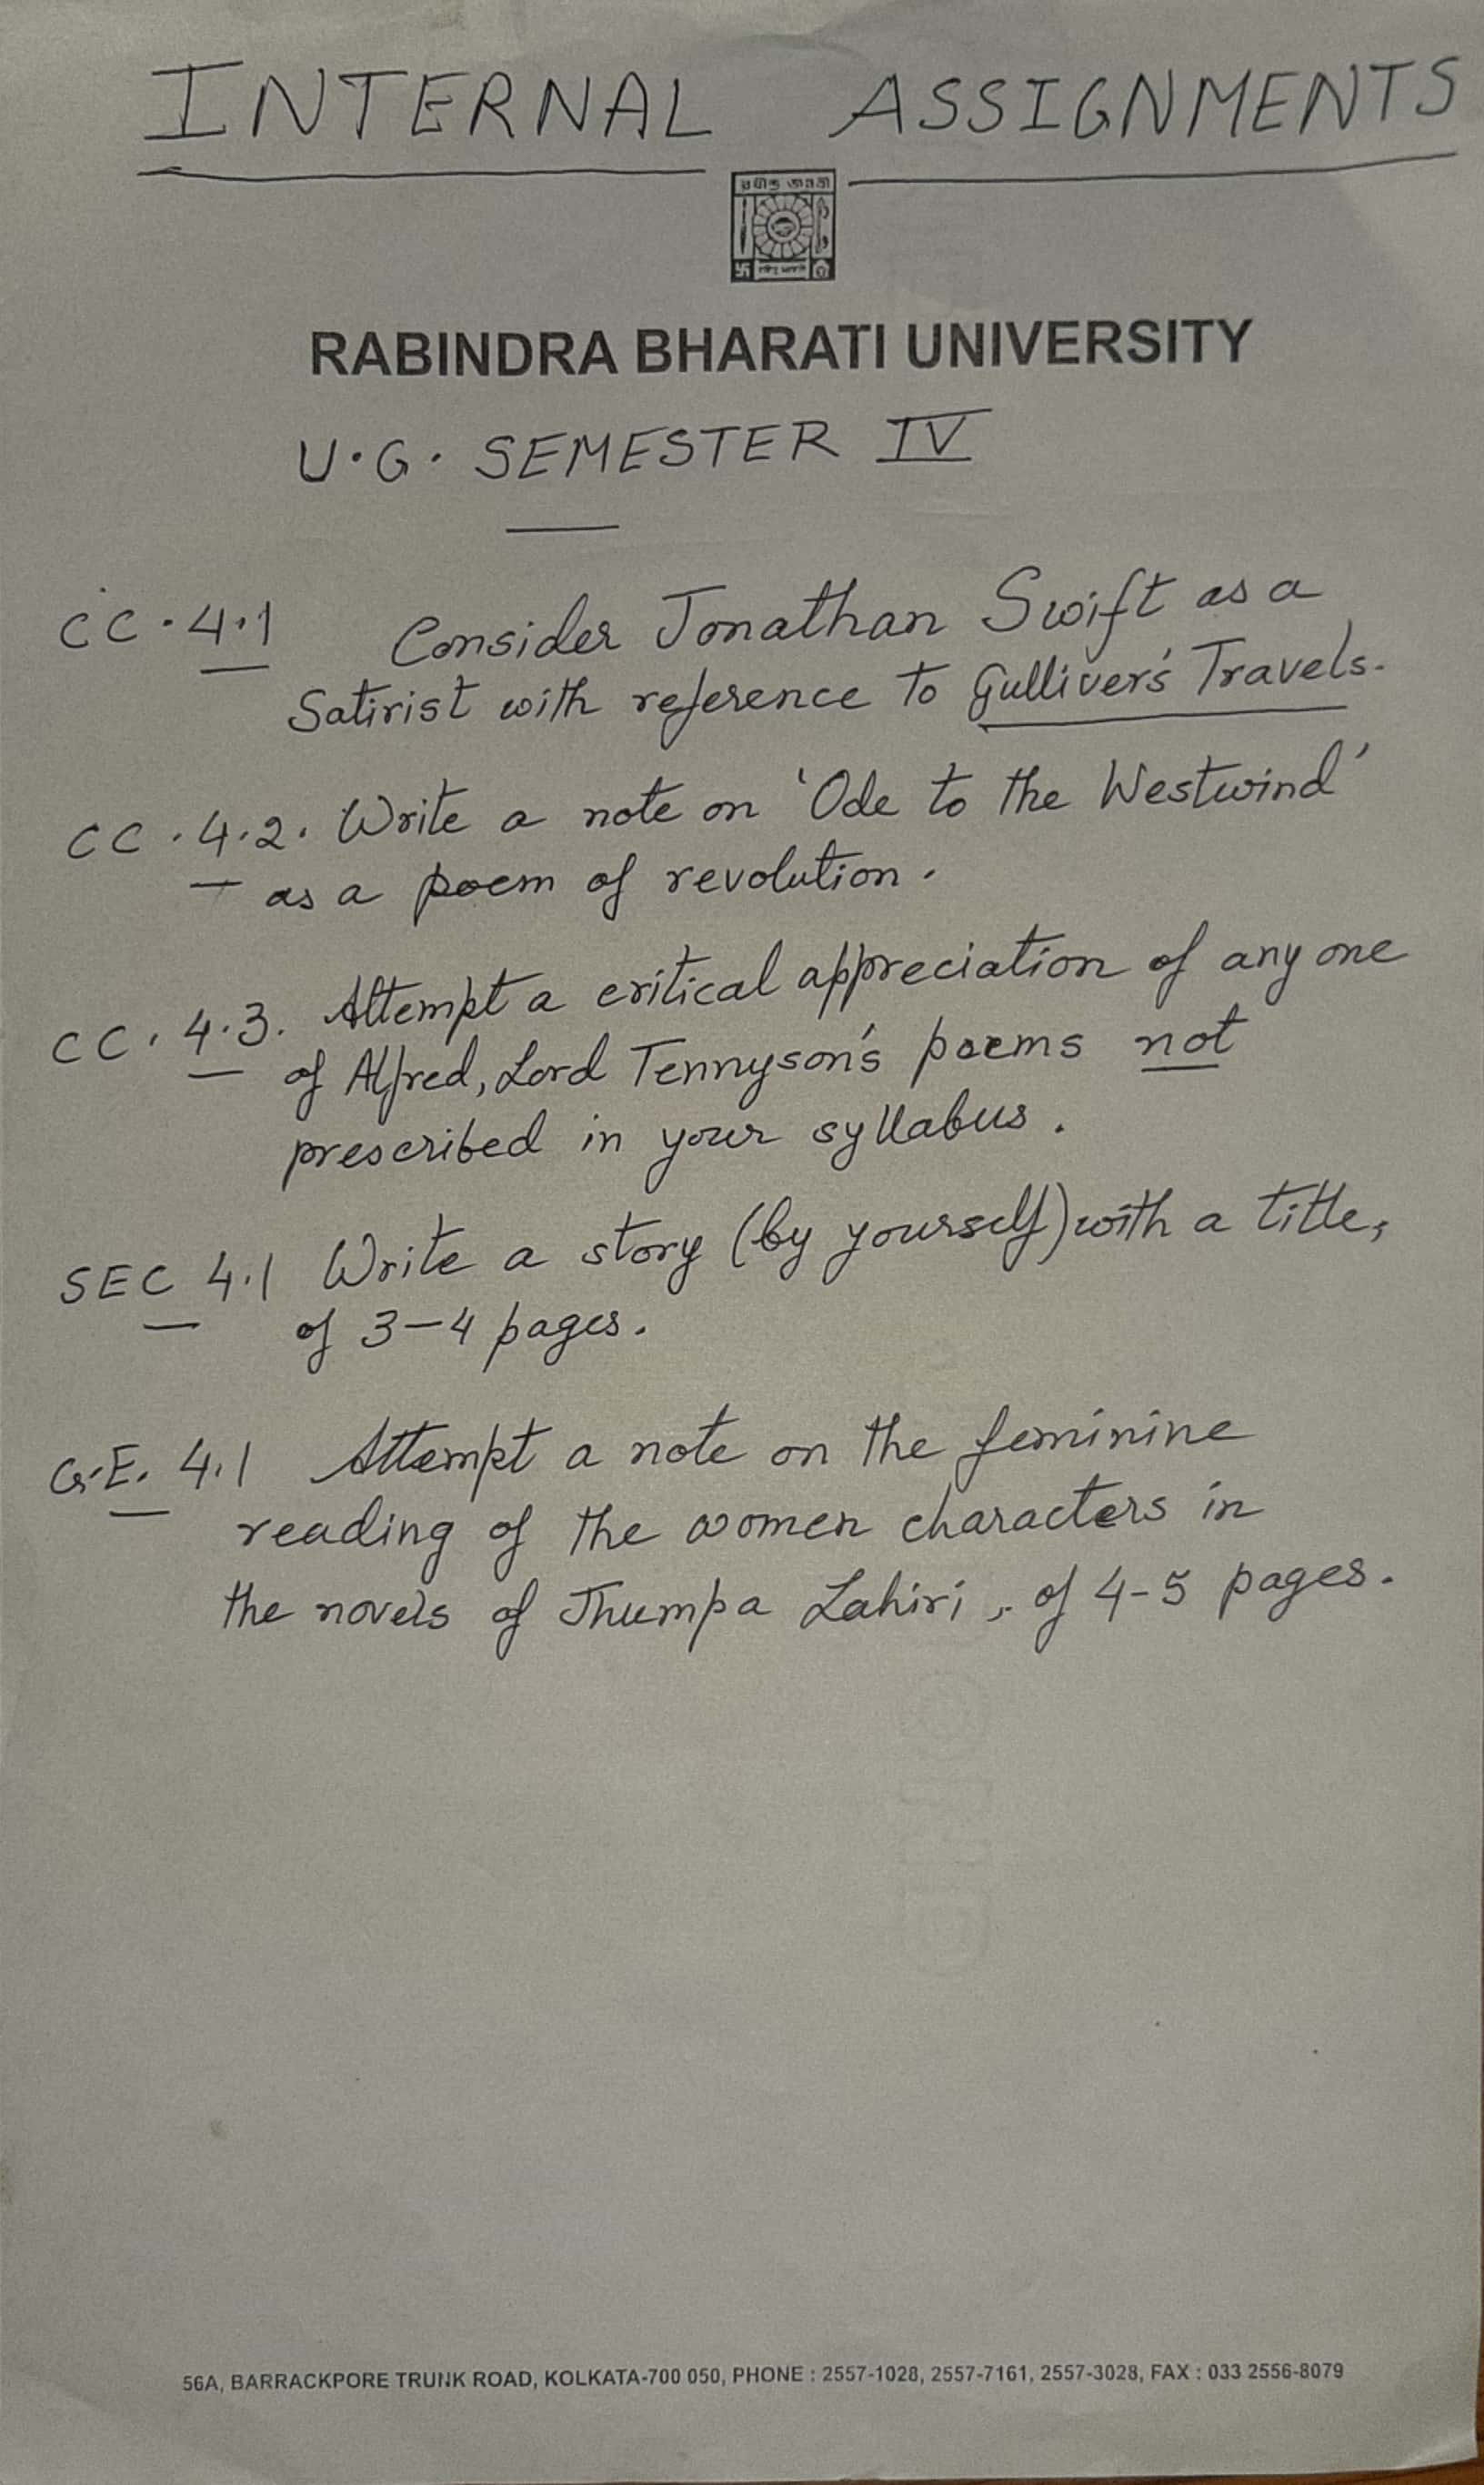 INTERNAL ASSIGNMENTS
রবীন্দ্র ভারতী
RABINDRA BHARATI UNIVERSITY
U.G. SEMESTER IV
CC.4.1 Consider Jonathan Swift as a
Satirist with reference to Gulliver's Travels.
CC.4.2. Write a note on 'Ode to the Westwind'
as a poem of revolution.
CC.4.3. Attempt a critical appreciation of any one
of Alfred, Lord Tennyson's poems not
prescribed in your syllabus.
SEC 4.1 Write a story (by yourself) with a title,
of 3-4 pages.
G.E. 4.1 Attempt a note on the feminine
reading of the women characters in
the novels of Jhumpa Lahiri, of 4-5 pages.
56A, BARRACKPORE TRUNK ROAD, KOLKATA-700 050, PHONE : 2557-1028, 2557-7161, 2557-3028, FAX : 033 2556-8079